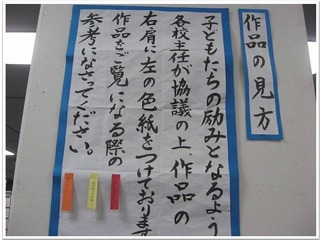 作品の見方
子どもたちの励みとなるよう
各校主任が協議の上、作品の
右肩に左の色紙をつけております
作品をご覧になる際の
参考になさってください。